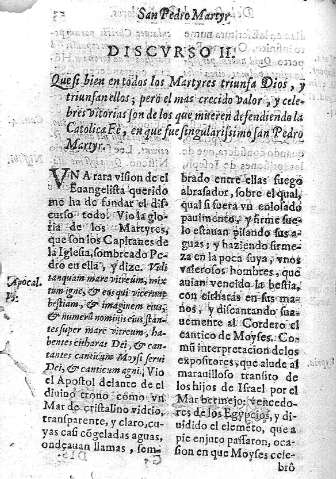 San Pedro Martyr
DISCVRSO II.
Que si bien en todos los Martyres triunfa Dios, y
triunfan ellos; però el mas crecido valor, y cele-
bres vitorias son de los que mueren defendiendo la
Catolica Fè, en que fue singularissimo san Pedro
Martyr.
VNA rara vision de el
Euangelista querido
me ha de fundar el dis-
curso todo. Viò la glo-
ria de los Martyres,
que son los Capitanes de
la Iglesia, sombreado Pe-
dro en ella, y dize. Vidi
tanquam mare vitreum, mix
tum igne, & eos qui vicerunt
bestiam, & imaginem eius,
& numerū nominis eius stan-
tes super mare vitreum, ha-
bentes citharas Dei, & can-
tantes canticum Moysi serui
Dei, & canticum agni; Viò
el Apostol delante de el
diuino trono como vn
Mar de cristalino vidrio,
transparente, y claro, cu-
yas casi cõgeladas aguas,
ondçauan llamas, sem-
Apocal.
brado entre ellas fuego
abrasador, sobre el qual,
qual si fuera vn colosado
pauimento, y firme sue-
lo estauan pisando sus a-
guas; y haziendo firme-
za en la poca suya, vnos
valerosos hombres, que
auian vencido la bestia,
con citharas en sus ma-
nos, y discantando sua-
uemente al Cordero el
cantico de Moyses. Co-
mū interpretacion de los
expositores, que alude al
marauilloso transito de
los hijos de Israel por el
Mar bermejo: vencedo-
res de los Egypcios, y di-
uidido el elemēto, que a
pie enjuto passaron, oca-
sion en que Moyses cele-
brò